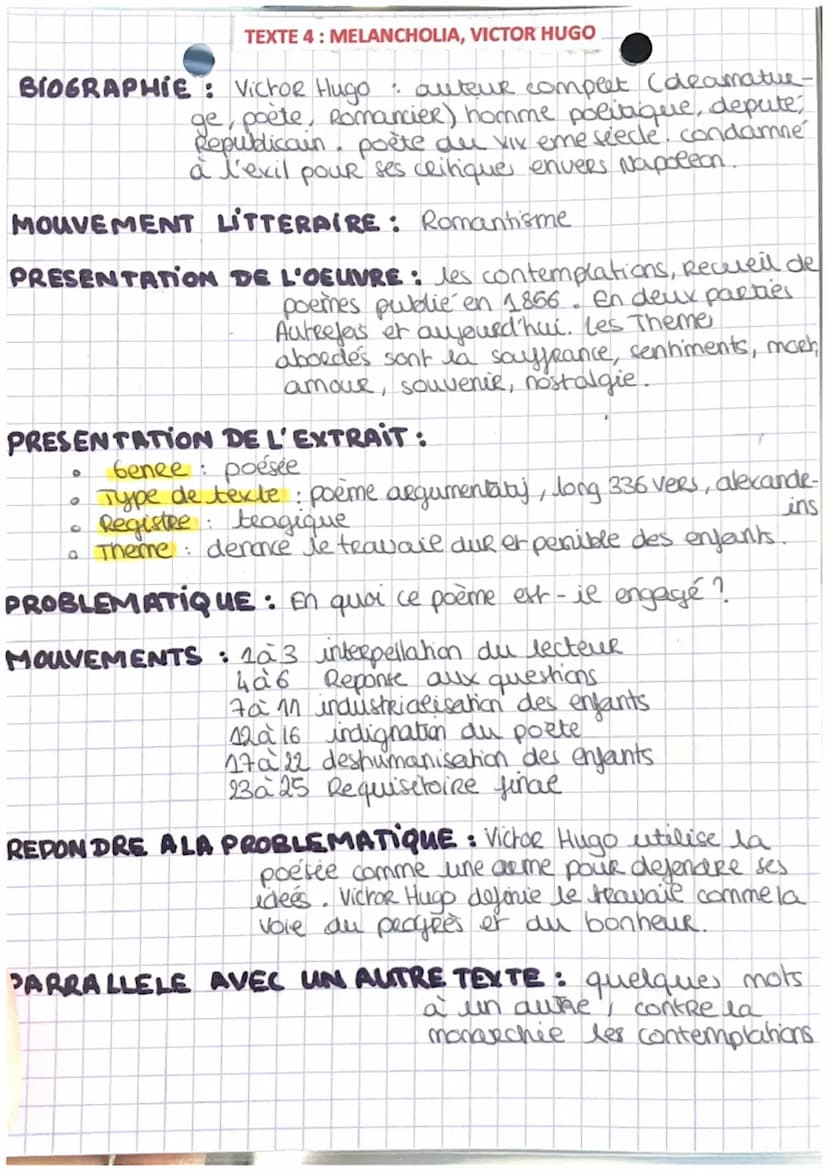 TEXTE 4 : MELANCHOLIA, VICTOR HUGO
BIOGRAPHIE : Victor Hugo : auteur complet (dramatur-
ge, poète, Romancier) homme politique, deputé,
Republicain. poète du XIX eme siecle. condamné
à l'exil pour ses critiques envers Napoleon.
MOUVEMENT LITTERAIRE : Romantisme
PRESENTATION DE L'OEUVRE : les contemplations, Recueil de
poèmes publié en 1856. en deux parties
Autrefois et aujourd'hui. Les Theme
abordés sont la souffrance, sentiments, mort,
amour, souvenir, nostalgie.
PRESENTATION DE L'EXTRAIT :
• Genre : poésie
• Type de texte : poème argumentatif, long 336 vers, alexandr-
ins
• Registre : tragique
• Theme : denonce le travail dur et penible des enfants.
PROBLEMATIQUE : En quoi ce poème est-il engagé ?
MOUVEMENTS : 1à3 interpellation du lecteur
4à6 Reponse aux questions
7à11 industrialisation des enfants
12à16 indignation du poete
17à22 deshumanisation des enfants
23à25 Requisitoire final
REPONDRE A LA PROBLEMATIQUE : Victor Hugo utilise la
poésie comme une arme pour defendre ses
ideés. Victor Hugo definie le travail comme la
voie du progrès et du bonheur.
PARRALLELE AVEC UN AUTRE TEXTE : quelques mots
à un autre, contre la
monarchie les contemplations